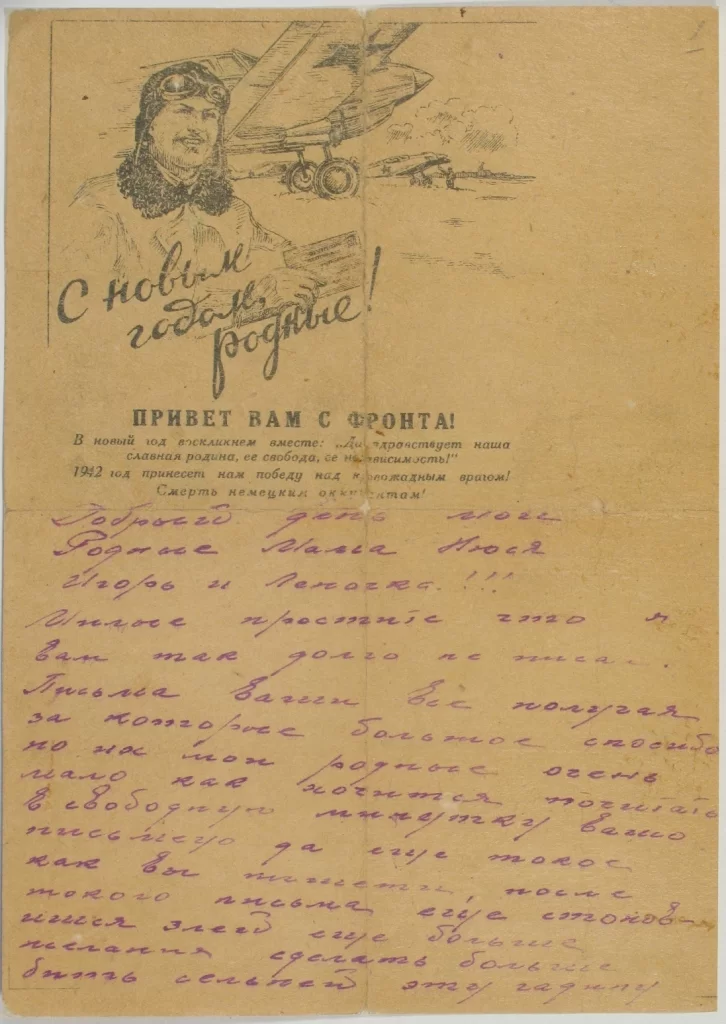 1
С новым
годом,
родные!
ПРИВЕТ ВАМ С ФРОНТА!
В новый год воскликнем вместе: „Да здравствует наша
славная родина, ее свобода, ее независимость!"
1942 год принесет нам победу над кровожадным врагом!
Смерть немецким оккупантам!
Добрый день мои
Родные Мама Нюся
Игорь и Леночка!!!
Милые простите что я
вам так долго не писал.
Письма ваши все получая
за которые большое спосибо
но их мои родные очень
мало как хочится почитать
в свободную минутку вашо
письмецо да еще токое
как вы пишети, после
токого письма еще станов-
ишся злей еще больше
желания сделать больше
бить сельней эту гадину